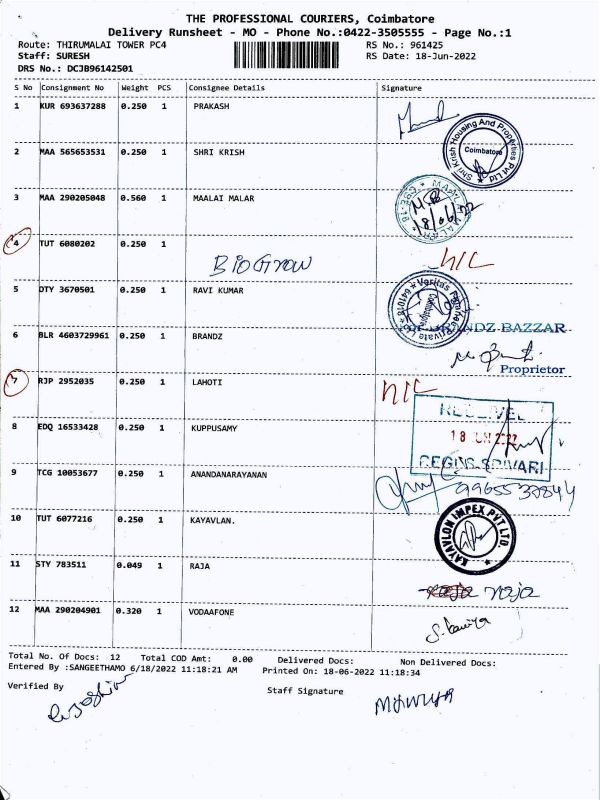 THE PROFESSIONAL COURIERS, Coimbatore
Delivery Runsheet - MO - Phone No.:0422-3505555 - Page No.:1
Route: THIRUMALAI TOWER PC4 RS No.: 961425
Staff: SURESH RS Date: 18-Jun-2022
DRS No.: DCJB96142501
S No Consignment No Weight PCS Consignee Details Signature
1 KUR 693637288 0.250 1 PRAKASH
2 MAA 565653531 0.250 1 SHRI KRISH
Shri Krish Housing And Properties Pvt Ltd
Coimbatore
3 MAA 290205048 0.560 1 MAALAI MALAR
18/06/22
4 TUT 6080202 0.250 1
BIOGrow
N/C
5 DTY 3670501 0.250 1 RAVI KUMAR
Coimbatore
BRANDZ BAZZAR
6 BLR 4603729961 0.250 1 BRANDZ
Proprietor
7 RJP 2952035 0.250 1 LAHOTI
N/C
RECEIVED
8 EDQ 16533428 0.250 1 KUPPUSAMY
18 JUN 2022
9 TCG 10053677 0.250 1 ANANDNARAYANAN
10 TUT 6077216 0.250 1 KAYAVLON.
KAYAVLON IMPEX PVT LTD
11 STY 783511 0.049 1 RAJA
raja raja
12 MAA 290204901 0.320 1 VODAAFONE
Total No. Of Docs: 12 Total COD Amt: 0.00 Delivered Docs: Non Delivered Docs:
Entered By :SANGEETHAMO 6/18/2022 11:18:21 AM Printed On: 18-06-2022 11:18:34
Verified By
Staff Signature